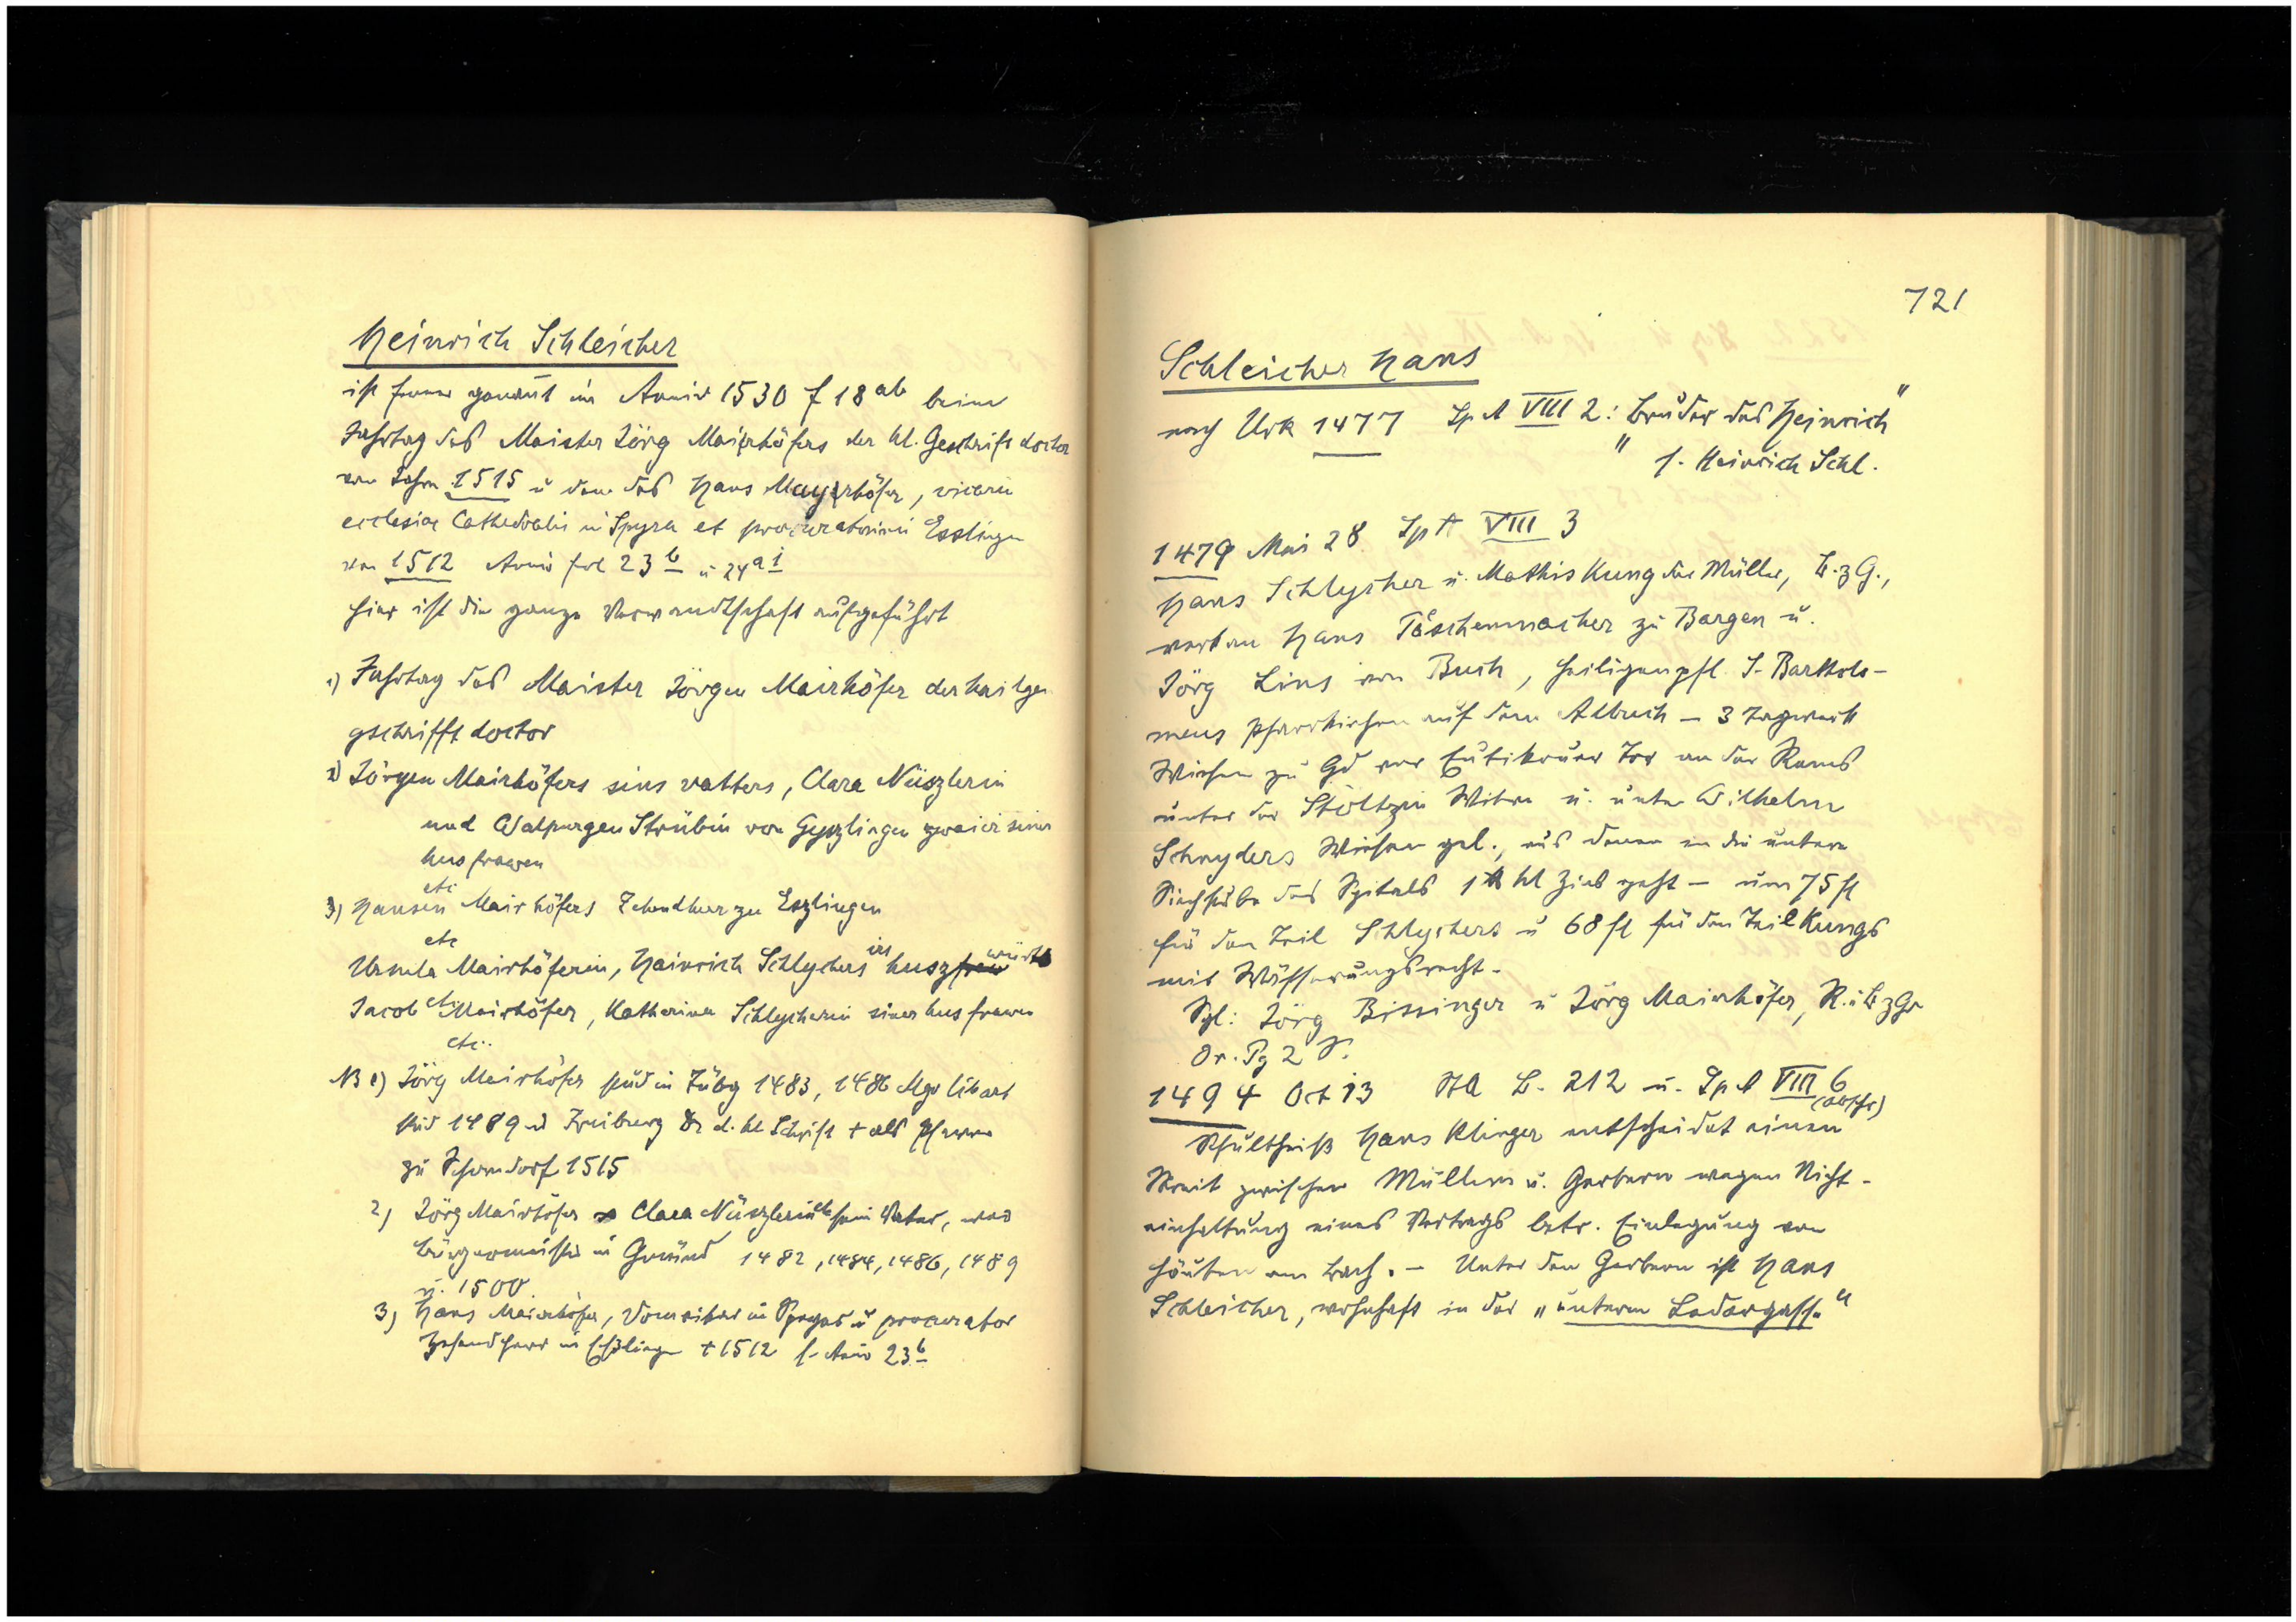 Heinrich Schleicher
ist ferner genannt im Anniv 1530 f 18 ab beim
Jahrtag des Maister Jörg Mairhöfers der hl. Geschrift doctor
vom Jahr 1515 u dem des Hans Mayerhöfer, vicarii
ecclesiae Cathedralis in Spyra et procuratorium Esslingen
von 1512 Anniv fol 23 b u 24 a i
hier ist die ganze Verwandtschaft aufgeführt
1) Jahrtag des Maister Jörgen Mairhöfer der hailgen
gschrifft doctor
2) Jörgen Mairhöfers sins vatters, Clara Nüszlerin
und Walpurgen Strübin von Gyszlingen zwaier siner
husfrawen
3) Hansen etc Mairhöfers Zehendherr zu Eszlingen
Ursula etc Mairhöferin, Hainrich Schlychers irs huszwürts
Jacob etc Mairhöfer, Katherina Schlycherin siner husfrawen
etc.
NB 1) Jörg Mairhöfer stud in Tübg 1483, 1486 Mgr lib art
stud 1489 in Freiburg Dr d. hl Schrift + als Pfarrer
zu Schorndorf 1515
2) Jörg Mairhöfer Clara Nüszlerin etc sein Vater, war
Bürgermeister in Gmünd 1482, 1484, 1486, 1489
u. 1500.
3) Hans Mairhöfer, Domvikar in Speyer u procurator
Zehendherr in Eßlingen + 1512 s. Anniv 23 b
721
Schleicher Hans
nach Urk 1477 Sp A VIII 2: "Bruder des Heinrich"
s. Heinrich Schl.
1479 Mai 28 Sp A VIII 3
Hans Schlycher u. Mathis Kung der Müller, B. z G.,
verk an Hans Täschenmacher zu Bargen u.
Jörg Lins von Buch, Heiligenpfl. S. Bartholo-
meus Pfarrkirchen auf dem Albuch – 3 Tagwerk
Wiesen zu Gd vor Eutikouer Tor an der Rems
unter der Stöltzin Witwe u. unter Wilhelm
Schnyders Wiesen gel., aus denen in die untere
Siechstube des Spitals 1 ℔ hl Zins geht – um 75 fl
für den Teil Schlychers u 68 fl für den Teil Kungs
mit Wässerungsrecht.
Sgl: Jörg Bissinger u Jörg Mairhöfer, R. u B z G
Or. Pg 2 S.
1494 Oct 13 StA B. 212 u. Sp A VIII 6
(Abschr)
Schultheiß Hans Klinger entscheidet einen
Streit zwischen Müllern u. Gerbern wegen Nicht-
einhaltung eines Vertrags betr. Einlegung von
Häuten am Bach. – Unter den Gerbern ist Hans
Schleicher, wohnhaft in der „untern Ledergasse“